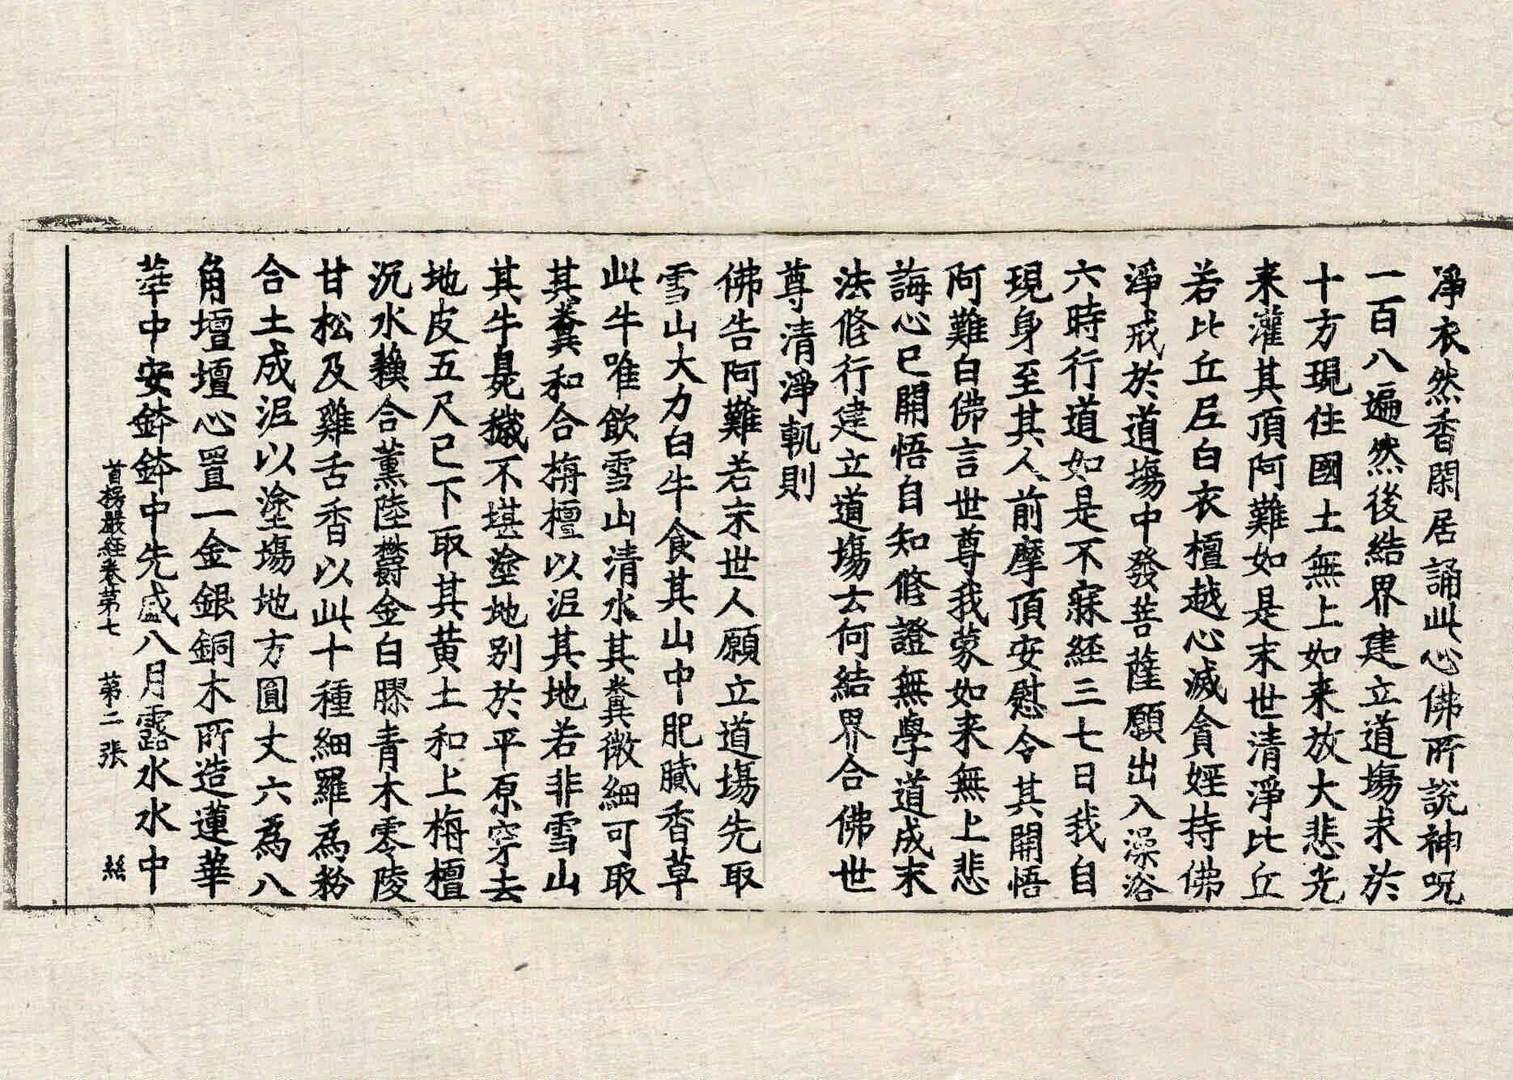 淨衣然香閑居誦此心佛所說神呪
一百八遍然後結界建立道場求於
十方現住國土無上如来放大悲光
来灌其頂阿難如是末世清淨比丘
若比丘尼白衣檀越心滅貪婬持佛
淨戒於道場中發菩薩願出入澡浴
六時行道如是不寐經三七日我自
現身至其人前摩頂安慰令其開悟
阿難白佛言世尊我蒙如来無上悲
誨心已開悟自知修證無學道成末
法修行建立道場云何結界合佛世
尊清淨軌則
佛告阿難若末世人願立道場先取
雪山大力白牛食其山中肥膩香草
此牛唯飲雪山清水其糞微細可取
其糞和合栴檀以泥其地若非雪山
其牛臭穢不堪塗地别於平原穿去
地皮五尺已下取其黄土和上栴檀
沉水蘇合薰陸欝金白膠青木零陵
甘松及雞舌香以此十種細羅為粉
合土成泥以塗場地方圓丈六為八
角壇壇心置一金銀銅木所造蓮華
華中安鉢鉢中先盛八月露水水中
首楞嚴經卷第七 第二張 絲